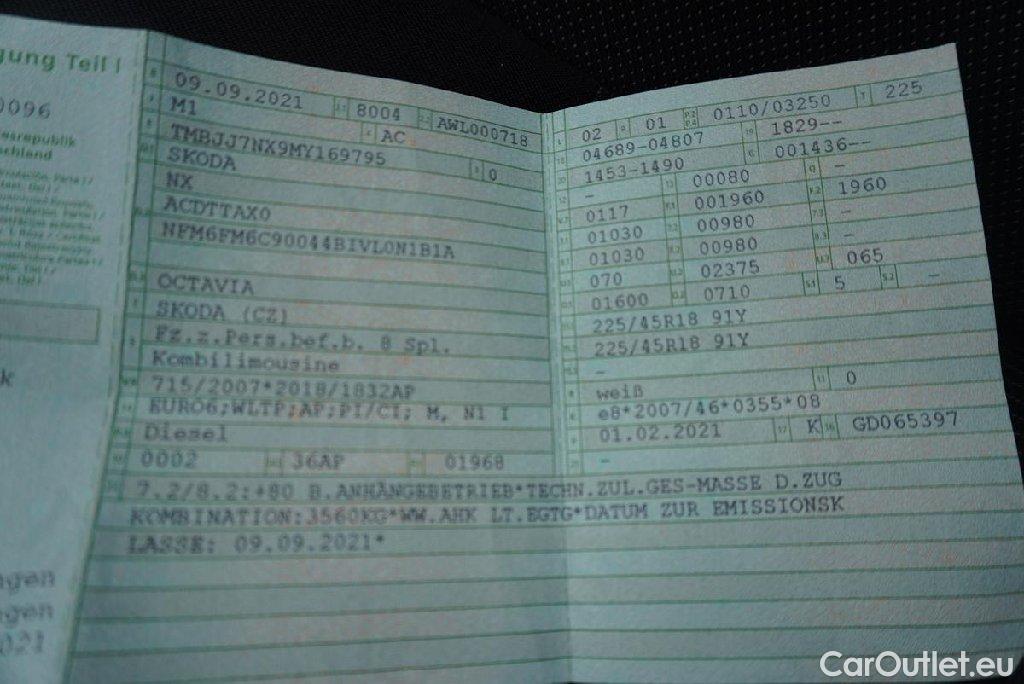 gung Teil I
0096
esrepublik
schland
k
ngen
ngen
021
09.09.2021 8004 AWL000718
M1 AC
TMBJJ7NX9MY169795 0
SKODA
NX
ACDTTAX0
NFM6FM6C90044BIVLON1B1A
OCTAVIA
SKODA (CZ)
Fz.z.Pers.bef.b. 8 Spl.
Kombilimousine
715/2007*2018/1832AP
EURO6;WLTP;AP;PI/CI; M, N1 I
Diesel
0002 36AP 01968
02 01 0110/03250 225
04689-04807 1829--
1453-1490 001436--
- 00080 -
0117 001960 1960
01030 00980 -
01030 00980 -
070 02375 065
01600 0710 5 -
225/45R18 91Y
225/45R18 91Y
-
weiß 0
e8*2007/46*0355*08
01.02.2021 K GD065397
-
7.2/8.2:+80 B.ANHÄNGEBETRIEB*TECHN.ZUL.GES-MASSE D.ZUG
KOMBINATION:3560KG*WW.AHK LT.EGTG*DATUM ZUR EMISSIONSK
LASSE: 09.09.2021*
CarOutlet.eu